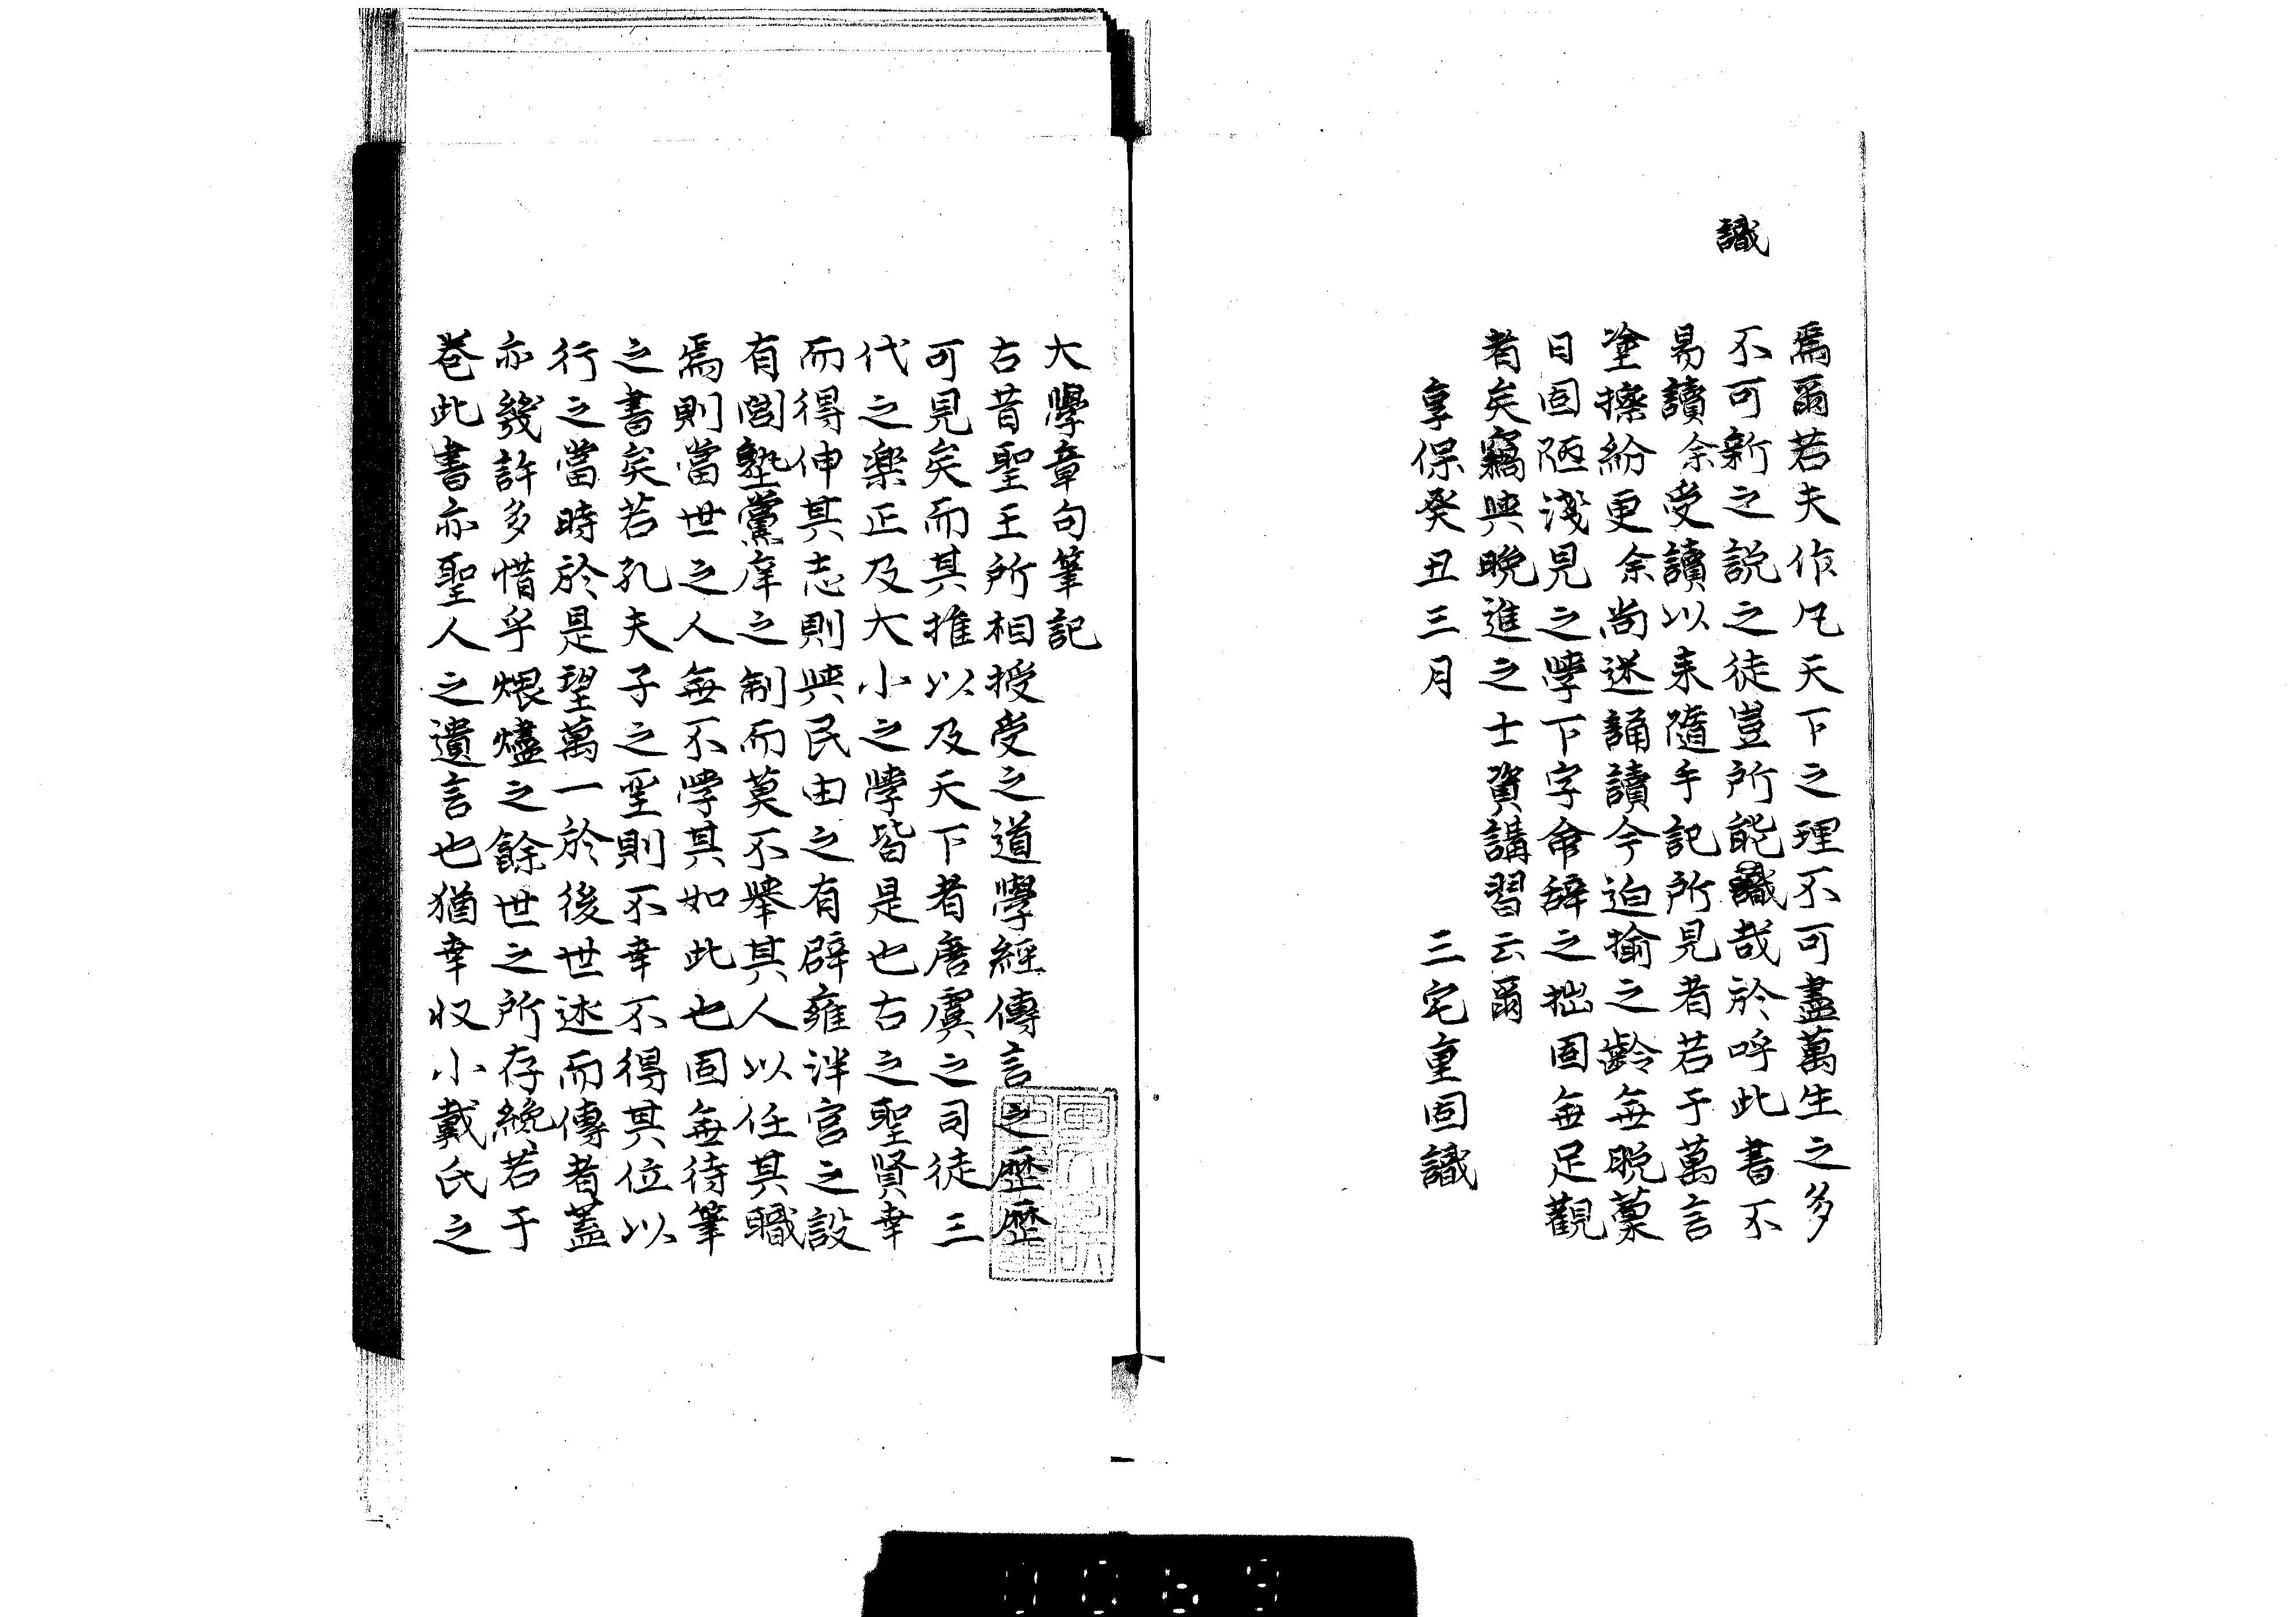 識
焉爾若夫作凡天下之理不可盡萬生之多
不可新之説之徒豈所能識哉於呼此書不
易讀余受讀以来隨手記所見者若于萬言
塗擦紛更余尚迷誦讀今迫揄之齡無晩藁
日固陋淺見之學下字命辞之拙固無足觀
者矣竊與晩進之士資講習云爾
享保癸丑三月 三宅重固識
大學章句筆記
古昔聖王所相授受之道學經傳言之歴歴
可見矣而其推以及天下者唐虞之司徒三
代之楽正及大小之學皆是也古之聖賢幸
而得伸其志則與民由之有辟雍泮宮之設
有閭塾黨庠之制而莫不舉其人以任其職
焉則當世之人無不學其如此也固無待筆
之書矣若孔夫子之聖則不幸不得其位以
行之當時於是望萬一於後世述而傳者蓋
亦幾許多惜乎煨燼之餘世之所存纔若于
巻此書亦聖人之遺言也猶幸収小戴氏之